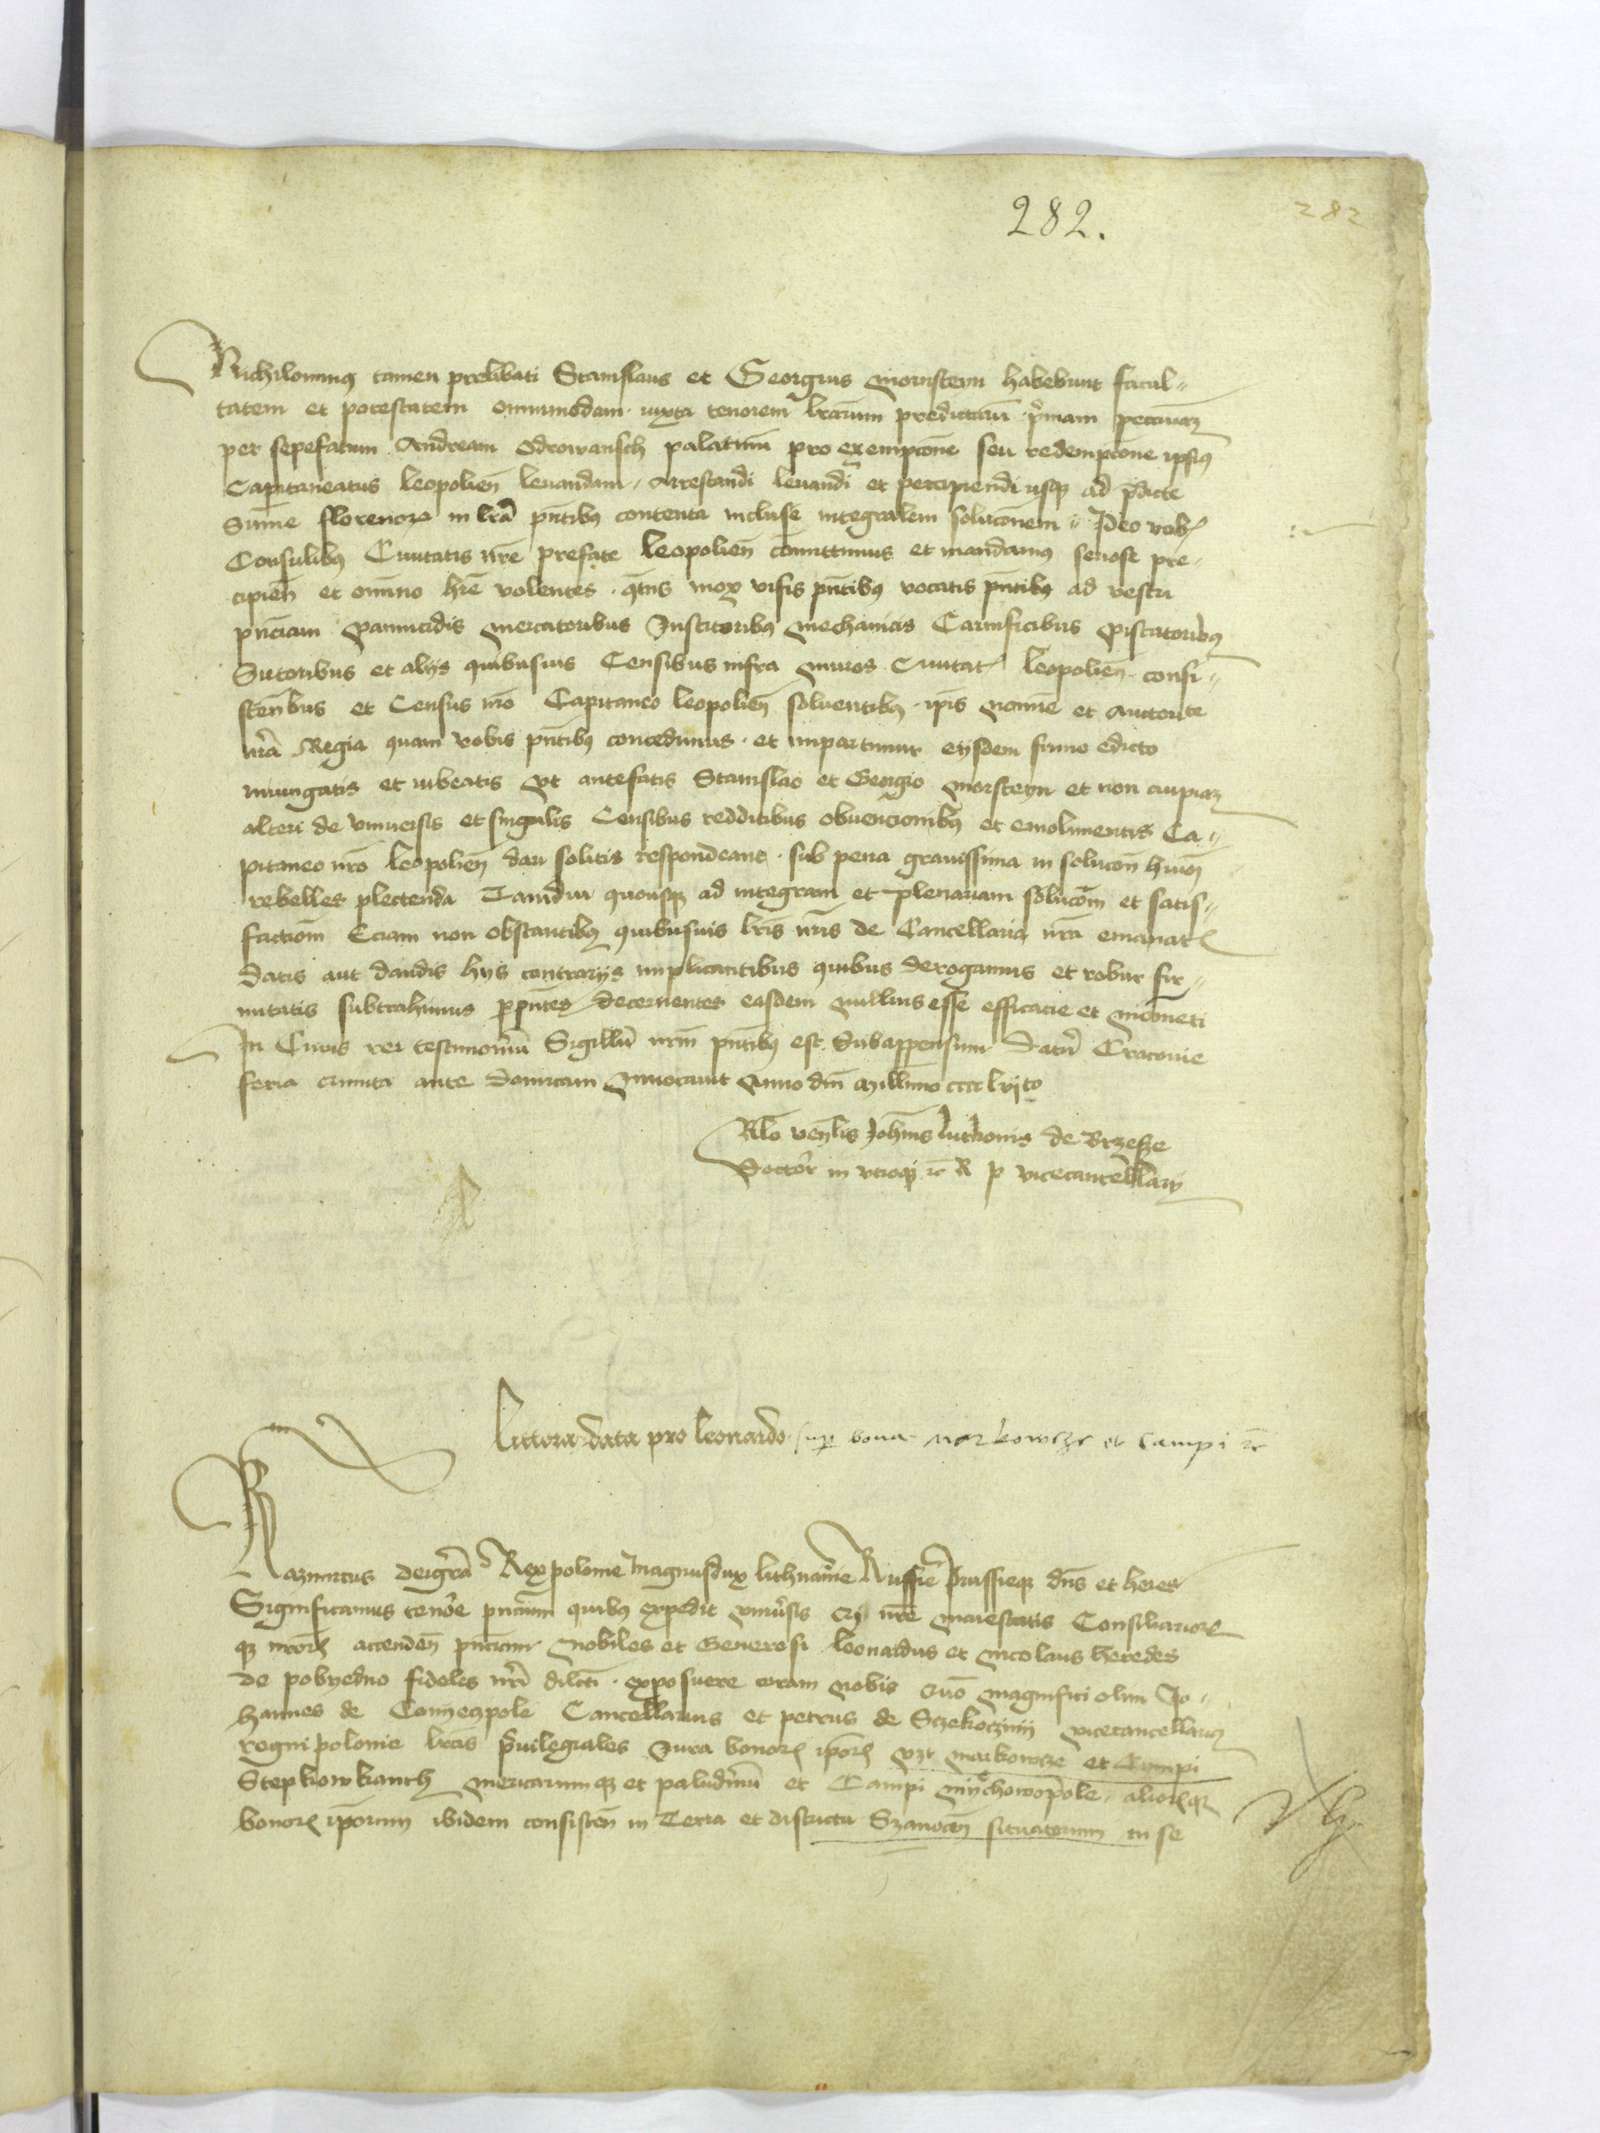 282.
282
Nichilominus tamen prelibati Stanislaus et Georgius Morstein habebunt facul-
tatem et potestatem omnimodam iuxta tenorem lrarum predictarum pecuniam
per sepefatum Andream Odrowansch palatinum pro exempcione seu redempcione ipsius
Capitaneatus leopolien levandam arrestandi levandi et percipiendi usque ad predicte
Summe florenorum in lra pntibus contenta incluse integralem solucionem Ideo vobis
Consulibus Civitatis nre prefate leopolien comittimus et mandamus seriose pre-
cipien et omnino hre volentes qtns mox visis pntibus vocatis pntibus ad vestri
pnciam pannicidis mercatoribus Institoribus mechanicis Carnificibus piscatoribus
Sutoribus et alys quibusuis Censibus infra muros Civitatis leopolien consi-
stentibus et Census nro Capitaneo leopolien solventibus ipis nomine et auctorite
nra Regia quam vobis pntibus concedimus et impartimur eysdem firmo edicto
iniungatis et iubeatis ut antefatis Stanislao et Georgio Morsteyn et non cuipiam
alteri de vniuersis et singulis Censibus redditibus obuencionibus et emolimentis Ca-
pitaneo nro leopolien dari solitis respondeant sub pena gravissima in solucion huiusmodi
rebelles plectenda Tamdiu quousque ad integram et plenariam solucom et satis-
factiom Eciam non obstantibus quibusuis lris nris de Cancellaria nra emanatis
datis aut dandis hys contrarys implicantibus quibus derogamus et robur fir-
mitatis subtrahimus pntes decernentes easdem nullius esse efficacie et momenti
In Cuius rei testimonium Sigillum nrm pntibus est Subappensum Datum Cracovie
feria quinta ante dominicam Invocavit Anno dni Millimo cccc lvijto
Rlo venlis Johnis lutkonis de Brzesze
doctor in vtroque ic R P vicecancellary
Littera data pro leonardo sup bona Markowcze et campi ic
Kazimirus dei gra Rex polonie magnus dux lithuanie Russie prussieque dns et heres
Significamus tenore pncium quibus expedit vniuersis nre maiestatis Consiliariorum
pnciam Nobiles et Generosi leonardus et Nicolaus heredes
de pobyedno fideles nri dilcti exposuere coram nobis quo magnifici olim Jo-
hannes de Conyeczpole Cancellarius et petrus de Sczekoczini vicecancellarius
regni polonie lras privilegiales Jura bonorum iporum vzt Markowcze et Campi
Stepkowkanth mericarumque et paludinum et Campi mychowopole aliorumque
bonorum iporum ibidem consisten in Terra et districtu Szanocen situatorum in se